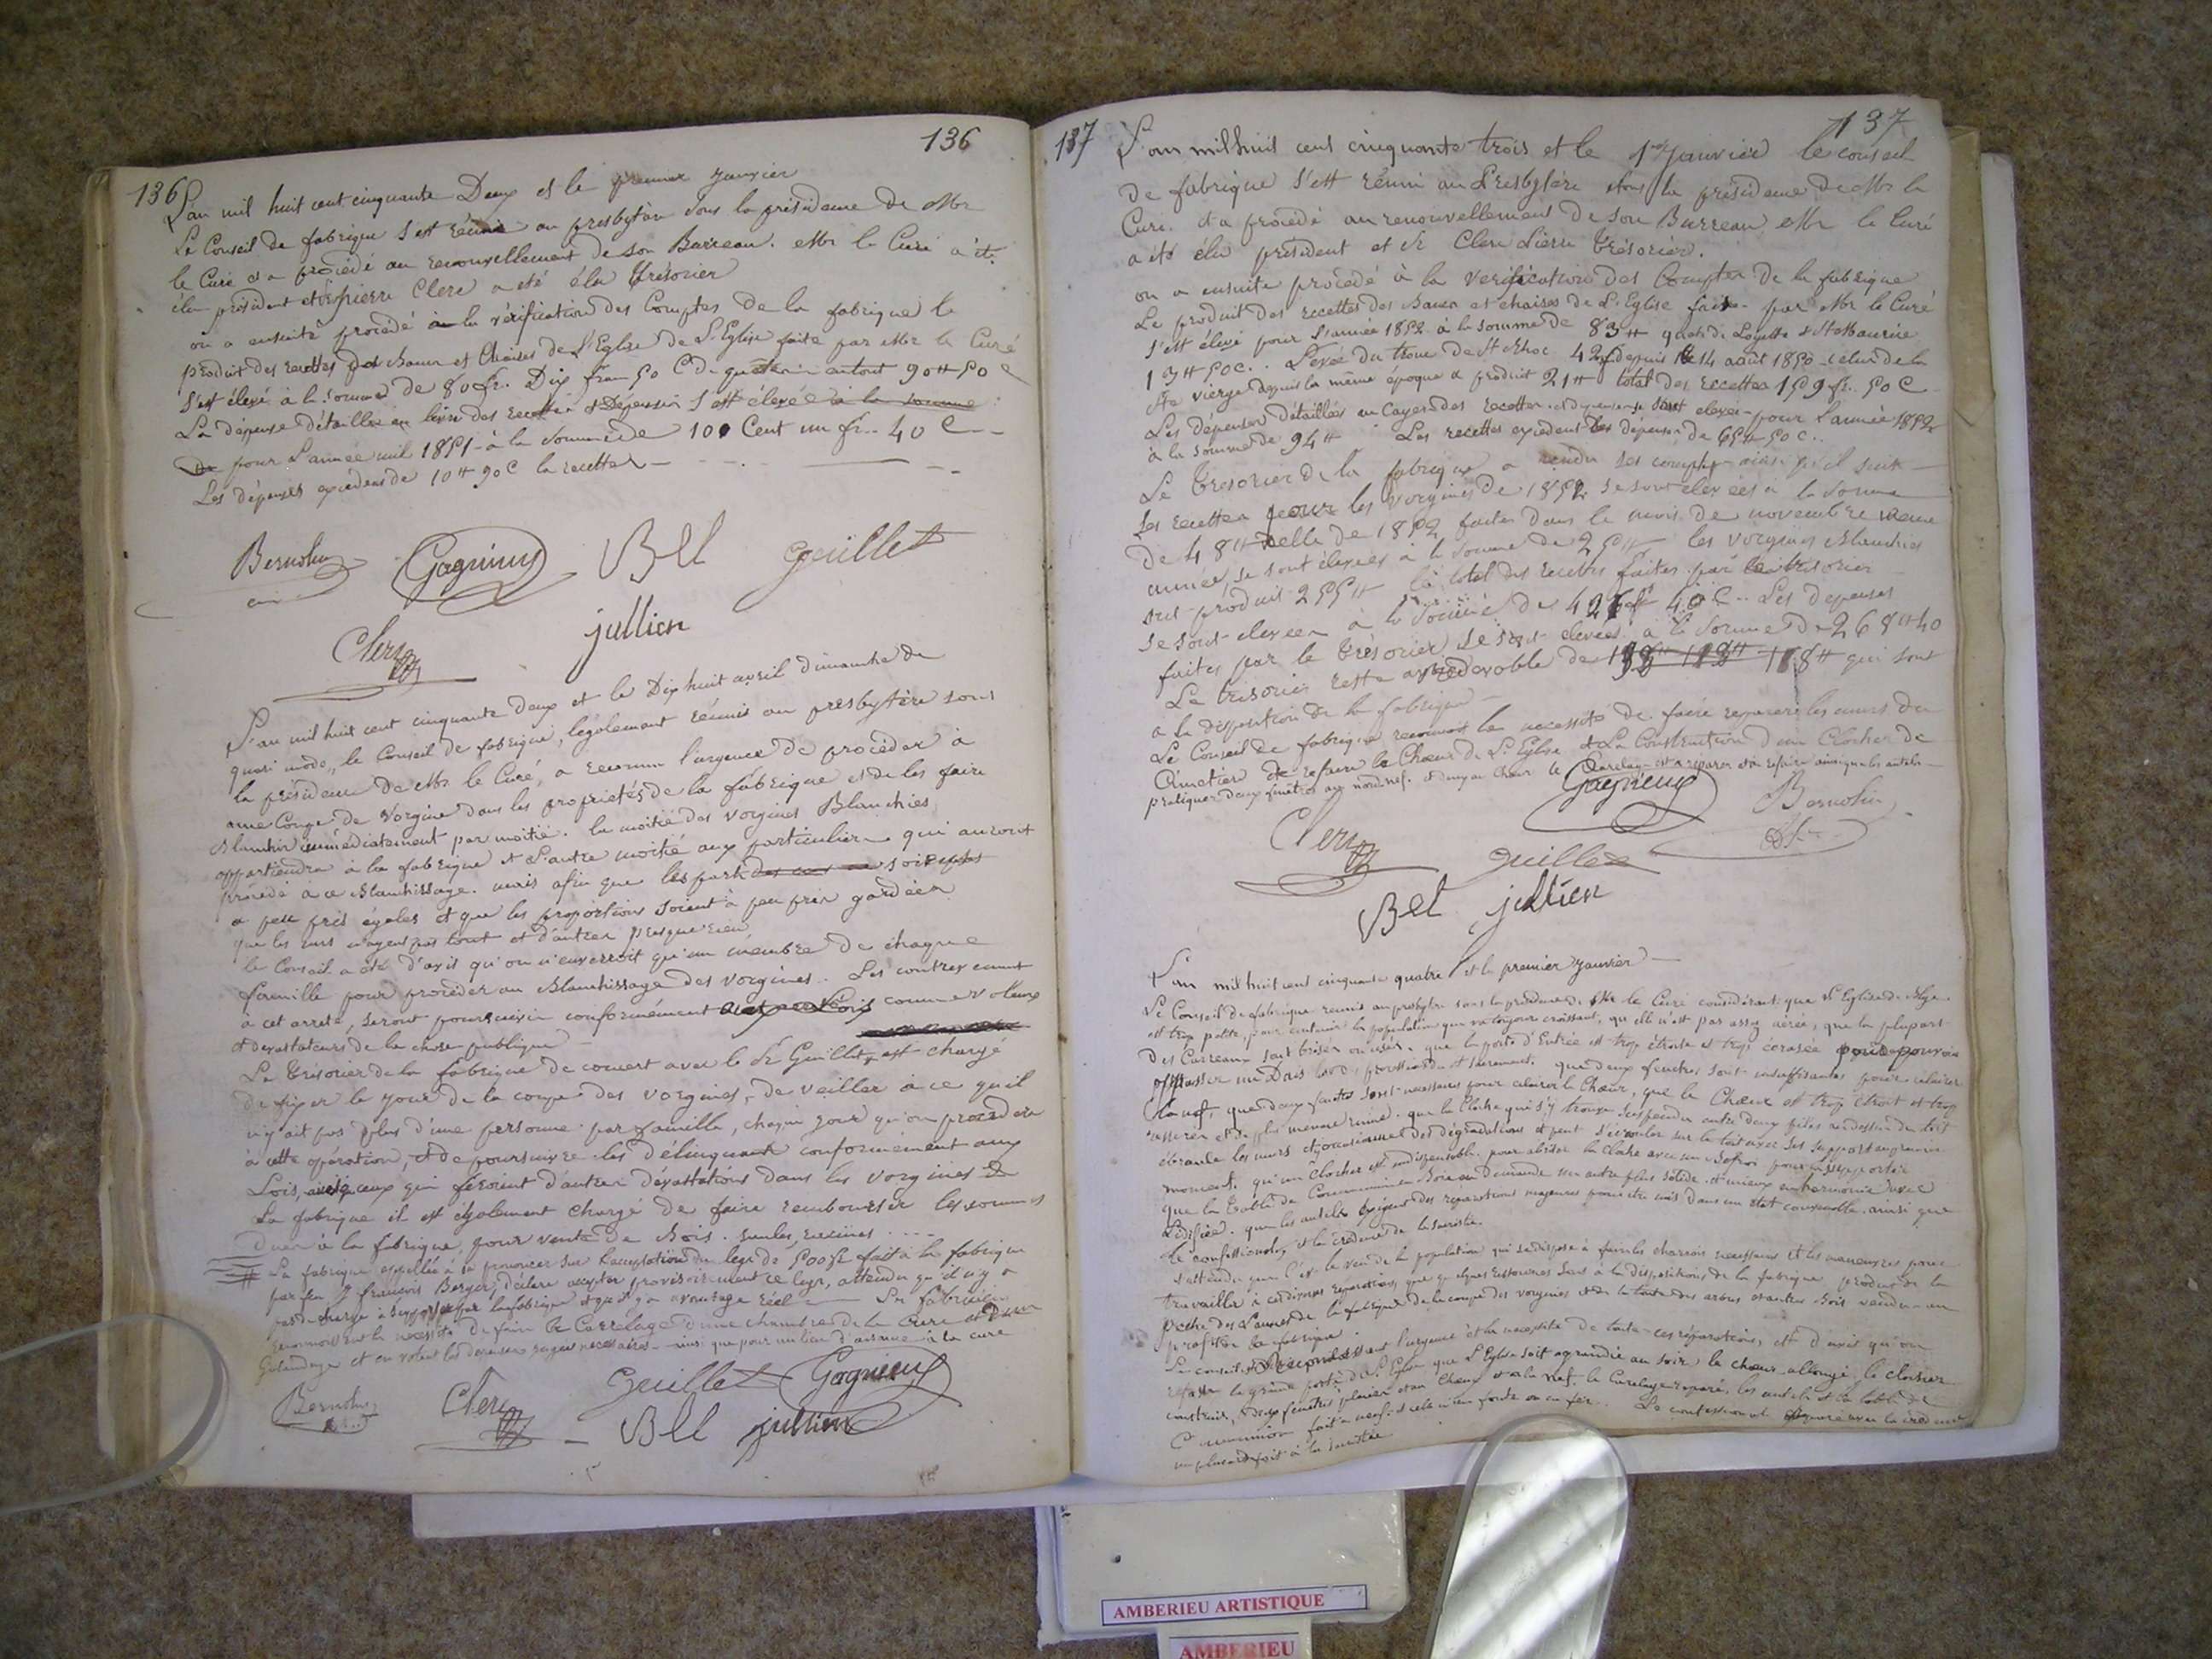 136
136
L'an mil huit cent cinquante Deux et le premier janvier
Le Conseil de fabrique s'est réuni au presbytère sous la présidence de Mr
le Curé et a procédé au renouvellement de son Bureau. Mr le Curé a été
élu président et Sr pierre Clerc a été élu trésorier
on a ensuite procédé à la vérification des Comptes de la fabrique le
produit des recettes des Bancs et Chaises de L'Eglise De L'Eglise faite par Mr le Curé
s'est élevé à la somme de 80 fr. Dix fran 50 C De en tout 90 # 50 c
La dépense détaillée au livre des Recettes et Dépenses s'est élevée à la somme
pour L'année mil 1851 à la Somme de 101 Cent un fr. 40 C
Les dépenses excèdent de 10 # 90 C la recette
Bernolin
Gagnieux
Bel
Guillet
Clerc
jullien
L'an mil huit cent cinquante deux et le Dix huit avril dimanche de
quasi modo, le Conseil de fabrique, légalement réunis au presbytère sous
la présidence de Mr le Curé, a reconnu l'urgence de procéder à
une Coupe de Vorgine dans les propriétés de la fabrique et de les faire
Blanchir immédiatement par moitié. la moitié des vorgines Blanchies
appartiendra à la fabrique et L'autre moitié aux particuliers qui auront
procédé à ce Blanchissage. mais afin que les parts soient
a peu près égales et que les proportions soient à peu près gardées
que les uns n'ayent pas tout et d'autres presque rien
le Conseil a été d'avis qu'on n'enverroit qu'un membre de chaque
famille pour procéder au Blanchissage des vorgines. Les contrevenant
à cet arreté, seront poursuivis conformément aux Lois comme voleurs
et dévastateurs de la chose publique
Le trésorier de la fabrique de concert avec le Sr Guillet est chargé
de fixer le jour de la coupe des vorgines, de veiller à ce qu'il
n'y ait pas plus d'une personne par famille, chaque jour qu'on procedera
à cette opération, et de poursuivre les délinquant conformément aux
Lois, ceux qui feroient d'autres dévastations dans les vorgines de
La fabrique il est également chargé de faire rembourser les sommes
Dues à la fabrique, pour vente de Bois. saules, racines
La fabrique appellée à se prononcer sur l'acceptation du legs de 500 fr. fait à la fabrique
par feu J françois Berger, déclare accepter provisoirement ce legs, attendu qu'il n'y a
pas de charge à supporter par la fabrique et qu'il y a avantage réel. La fabrique
reconnoissant la nécessité de faire le Carrelage d'une chambre de la Cure et d'un
Galandage et en votent les dépenses jugées nécessaires ainsi que pour un lieu d'aisance à la cure
Bernolin
Clerc
Guillet
Gagnieux
Bel
jullien
137
137
L'an mil huit cent cinquante trois et le 1er janvier le conseil
de fabrique s'est réuni au Presbytère sous la présidence de Mr le
Curé. et a procédé au renouvellement de son Bureau Mr le Curé
a été élu président et Sr Clerc Pierre trésorier.
on a ensuite procédé à la vérification des Comptes de la fabrique
Le produit des recettes des Bancs et chaises de L'Eglise faite par Mr le Curé
s'est élevé pour l'année 1852 à la somme de 83 # Loyette & St Maurice
13 # 50 c. Levée du tronc de St Roc 42 # depuis le 14 août 1850 celui de la
Ste vierge depuis la même époque a produit 21 # total des recettes 159 fr. 50 C
Les dépenses détaillées au Cayer des recettes et dépenses se sont élevées pour l'année 1852
à la somme de 94 # Les recettes excèdent les dépenses de 65 # 50 c.
Le trésorier de la fabrique a rendu ses comptes ainsi qu'il suit
Les recettes pour les vorgines de 1852 se sont élevées à la somme
de 48 # celle de 1852 faites dans le mois de novembre
année, se sont élevées à la somme de les vorgines Blanchies
ont produit 255 # le total des recettes faites par le trésorier
se sont élevées à la somme de 40 C. Les dépenses
faites par le trésorier se sont élevées à la somme De 268 # 40
Le trésorier reste redevable de 158 # qui sont
a la disposition de la fabrique
Le Conseil de fabrique reconnoit la nécessité de faire réparer les murs du
Cimetier de refaire le Chœur de L'Eglise et La Construction d'un Clocher de
pratiquer deux fenêtres au nord nef. et deux au Chœur le Carelage est a réparer et a refaire ainsi que les autels
Clerc
Gagnieux
Bernolin
Guillet
Bel
jullien
L'an mil huit cent cinquante quatre et le premier janvier
Le Conseil de fabrique réunis au presbytère sous la présidence de Mr le Curé considérant que L'Eglise de Blye
est trop petite, pour contenir la population qui va toujours croissant, qu'elle n'est pas assez aérée, que la plupart
des Carreaux sont brisés ou usés. que la porte d'Entrée est trop étroite et trop écrasée pour pouvoir
passer un Dais lors des processions du St Sacrement. que deux fenêtres sont insuffisantes pour éclairer
la nef, que deux fenêtres sont nécessaires pour éclairer le Chœur, que le Chœur est trop étroit et trop
resserré et de plus menace ruine. que la Cloche qui s'y trouve suspendue entre deux piles au dessus du toit
ébranle les murs et occasionne des dégradations et peut s'écrouler sur le toit avec ses supports au premier
moment. qu'un Clocher est indispensable pour abriter la Cloche avec un Béfroi pour la supporter
que la table de Communion en Bois en demande une autre plus solide et mieux en harmonie avec
L'édifice. que les autels exigent des réparations majeures pour être mis dans un état convenable ainsi que
le confessional, et la crédence de la sacristie.
et attendu que C'est le vœu de la population qui se dispose à faire les charrois nécessaires et les manœuvres pour
travailler à ces diverses réparations, que quelques ressources sont à la disposition de la fabrique, produit de la
pêche des Laumes de la fabrique de la coupe des vorgines et de la tonte des arbres et autres Bois vendus au
profit de la fabrique.
Le conseil reconnoissant l'urgence et la nécessité de toutes ces réparations, est d'avis qu'on
refasse la grande porte de L'Eglise que L'Eglise soit agrandie au soir, le chœur allongé, le clocher
construit, deux fenêtres placées et au Chœur et à la nef. le Carelage réparé, les autels et la table de
Communion fait à neuf. et celle ci en fonte ou en fer. Le confessional réparé avec la crédence
un placard fait à la sacristie
AMBERIEU ARTISTIQUE
AMBERIEU